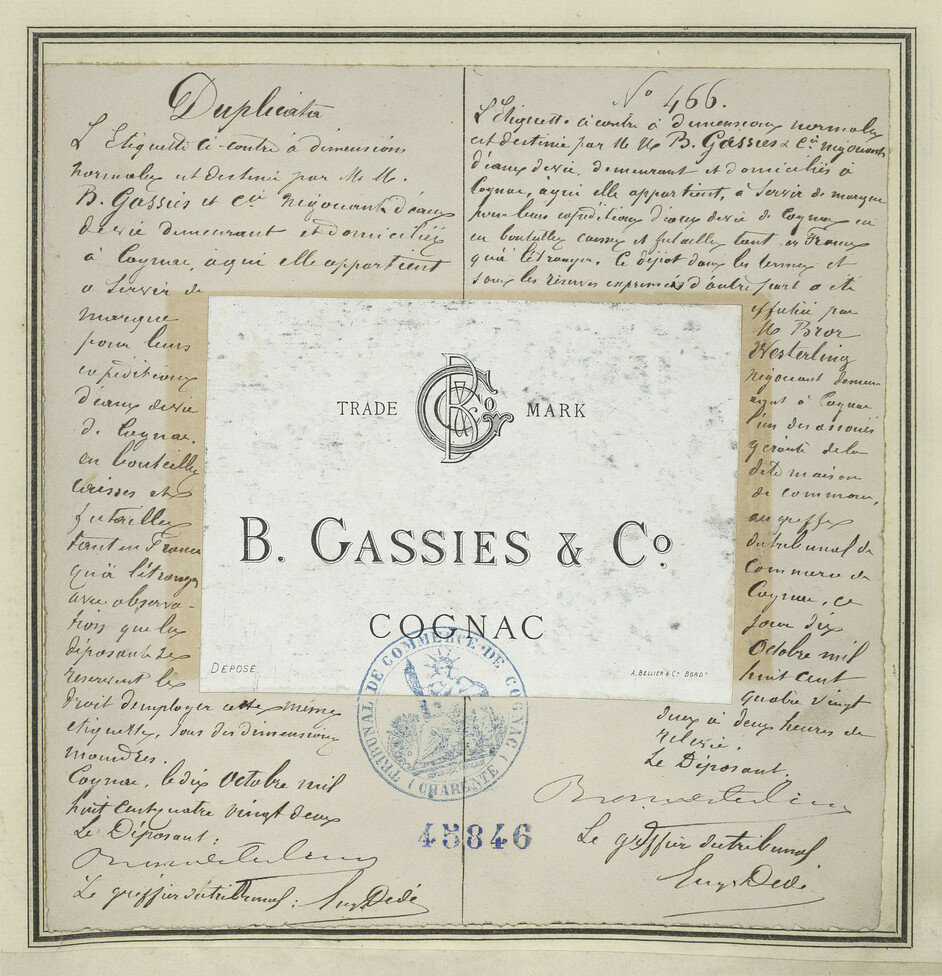 Duplicata
L'Etiquette ci-contre à dimensions
normales est destinée par M. M.
B. Gassies et Cie négociants d'eaux
de vie demeurant et domiciliés
à Cognac, à qui elle appartient
à servir de
marque
pour leurs
expéditions
d'eaux de vie
de Cognac,
en bouteilles
caisses et
futailles
tant en France
qu'à l'étranger
avec observa-
tion que les
déposants se
réservent le
droit d'employer cette même
étiquette, sous des dimensions
moindres.
Cognac, le dix Octobre mil
huit cent quatre vingt deux
Le Déposant:
Le greffier du tribunal: Eug. Dedé
No 466.
L'Etiquette ci contre à dimensions normales
est destinée par M M B. Gassies & Cie négociants
d'eaux de vie, demeurant et domiciliés à
Cognac, à qui elle appartient, à servir de marque
pour leurs expéditions d'eaux de vie de Cognac en
en bouteilles caisses et futailles tant en France
qu'à l'étranger. Ce dépôt dans les termes et
sous les réserves exprimés d'autre part a été
effectué par
M Bror
Westerling
négociant demeu-
rant à Cognac
l'un des associés
gérants de la
dite maison
de commerce,
au greffe
du tribunal de
Commerce de
Cognac, ce
jour dix
Octobre mil
huit cent
quatre vingt
deux à deux heures de
relevée.
Le Déposant.
Le greffier du tribunal
Eug. Dedé
TRADE BG & Co MARK
B. GASSIES & Co.
COGNAC
DEPOSÉ
A. BELLIER & Cie BORDx
TRIBUNAL DE COMMERCE DE COGNAC
(CHARENTE)
45846